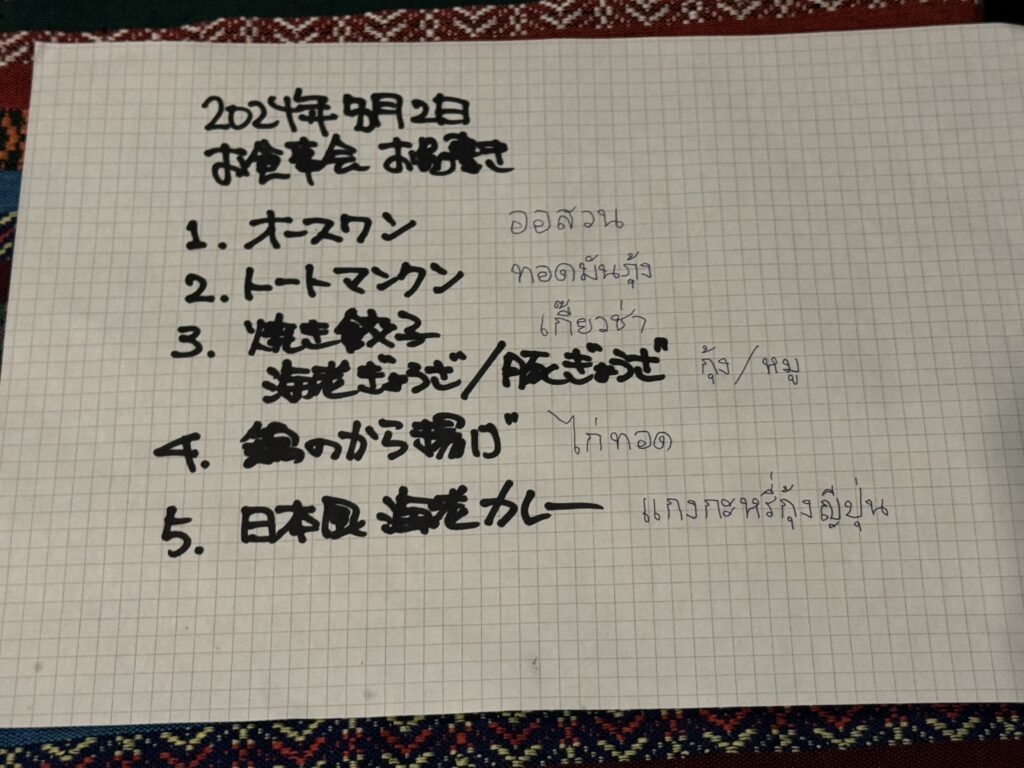 2024年8月2日
お食事会 お品書き
1. オースワン ออสวน
2. トートマンクン ทอดมันกุ้ง
3. 焼き餃子 เกี๊ยวซ่า
海老ぎょうざ/豚ぎょうざ กุ้ง/หมู
4. 鶏のから揚げ ไก่ทอด
5. 日本風 海老カレー แกงกะหรี่กุ้งญี่ปุ่น